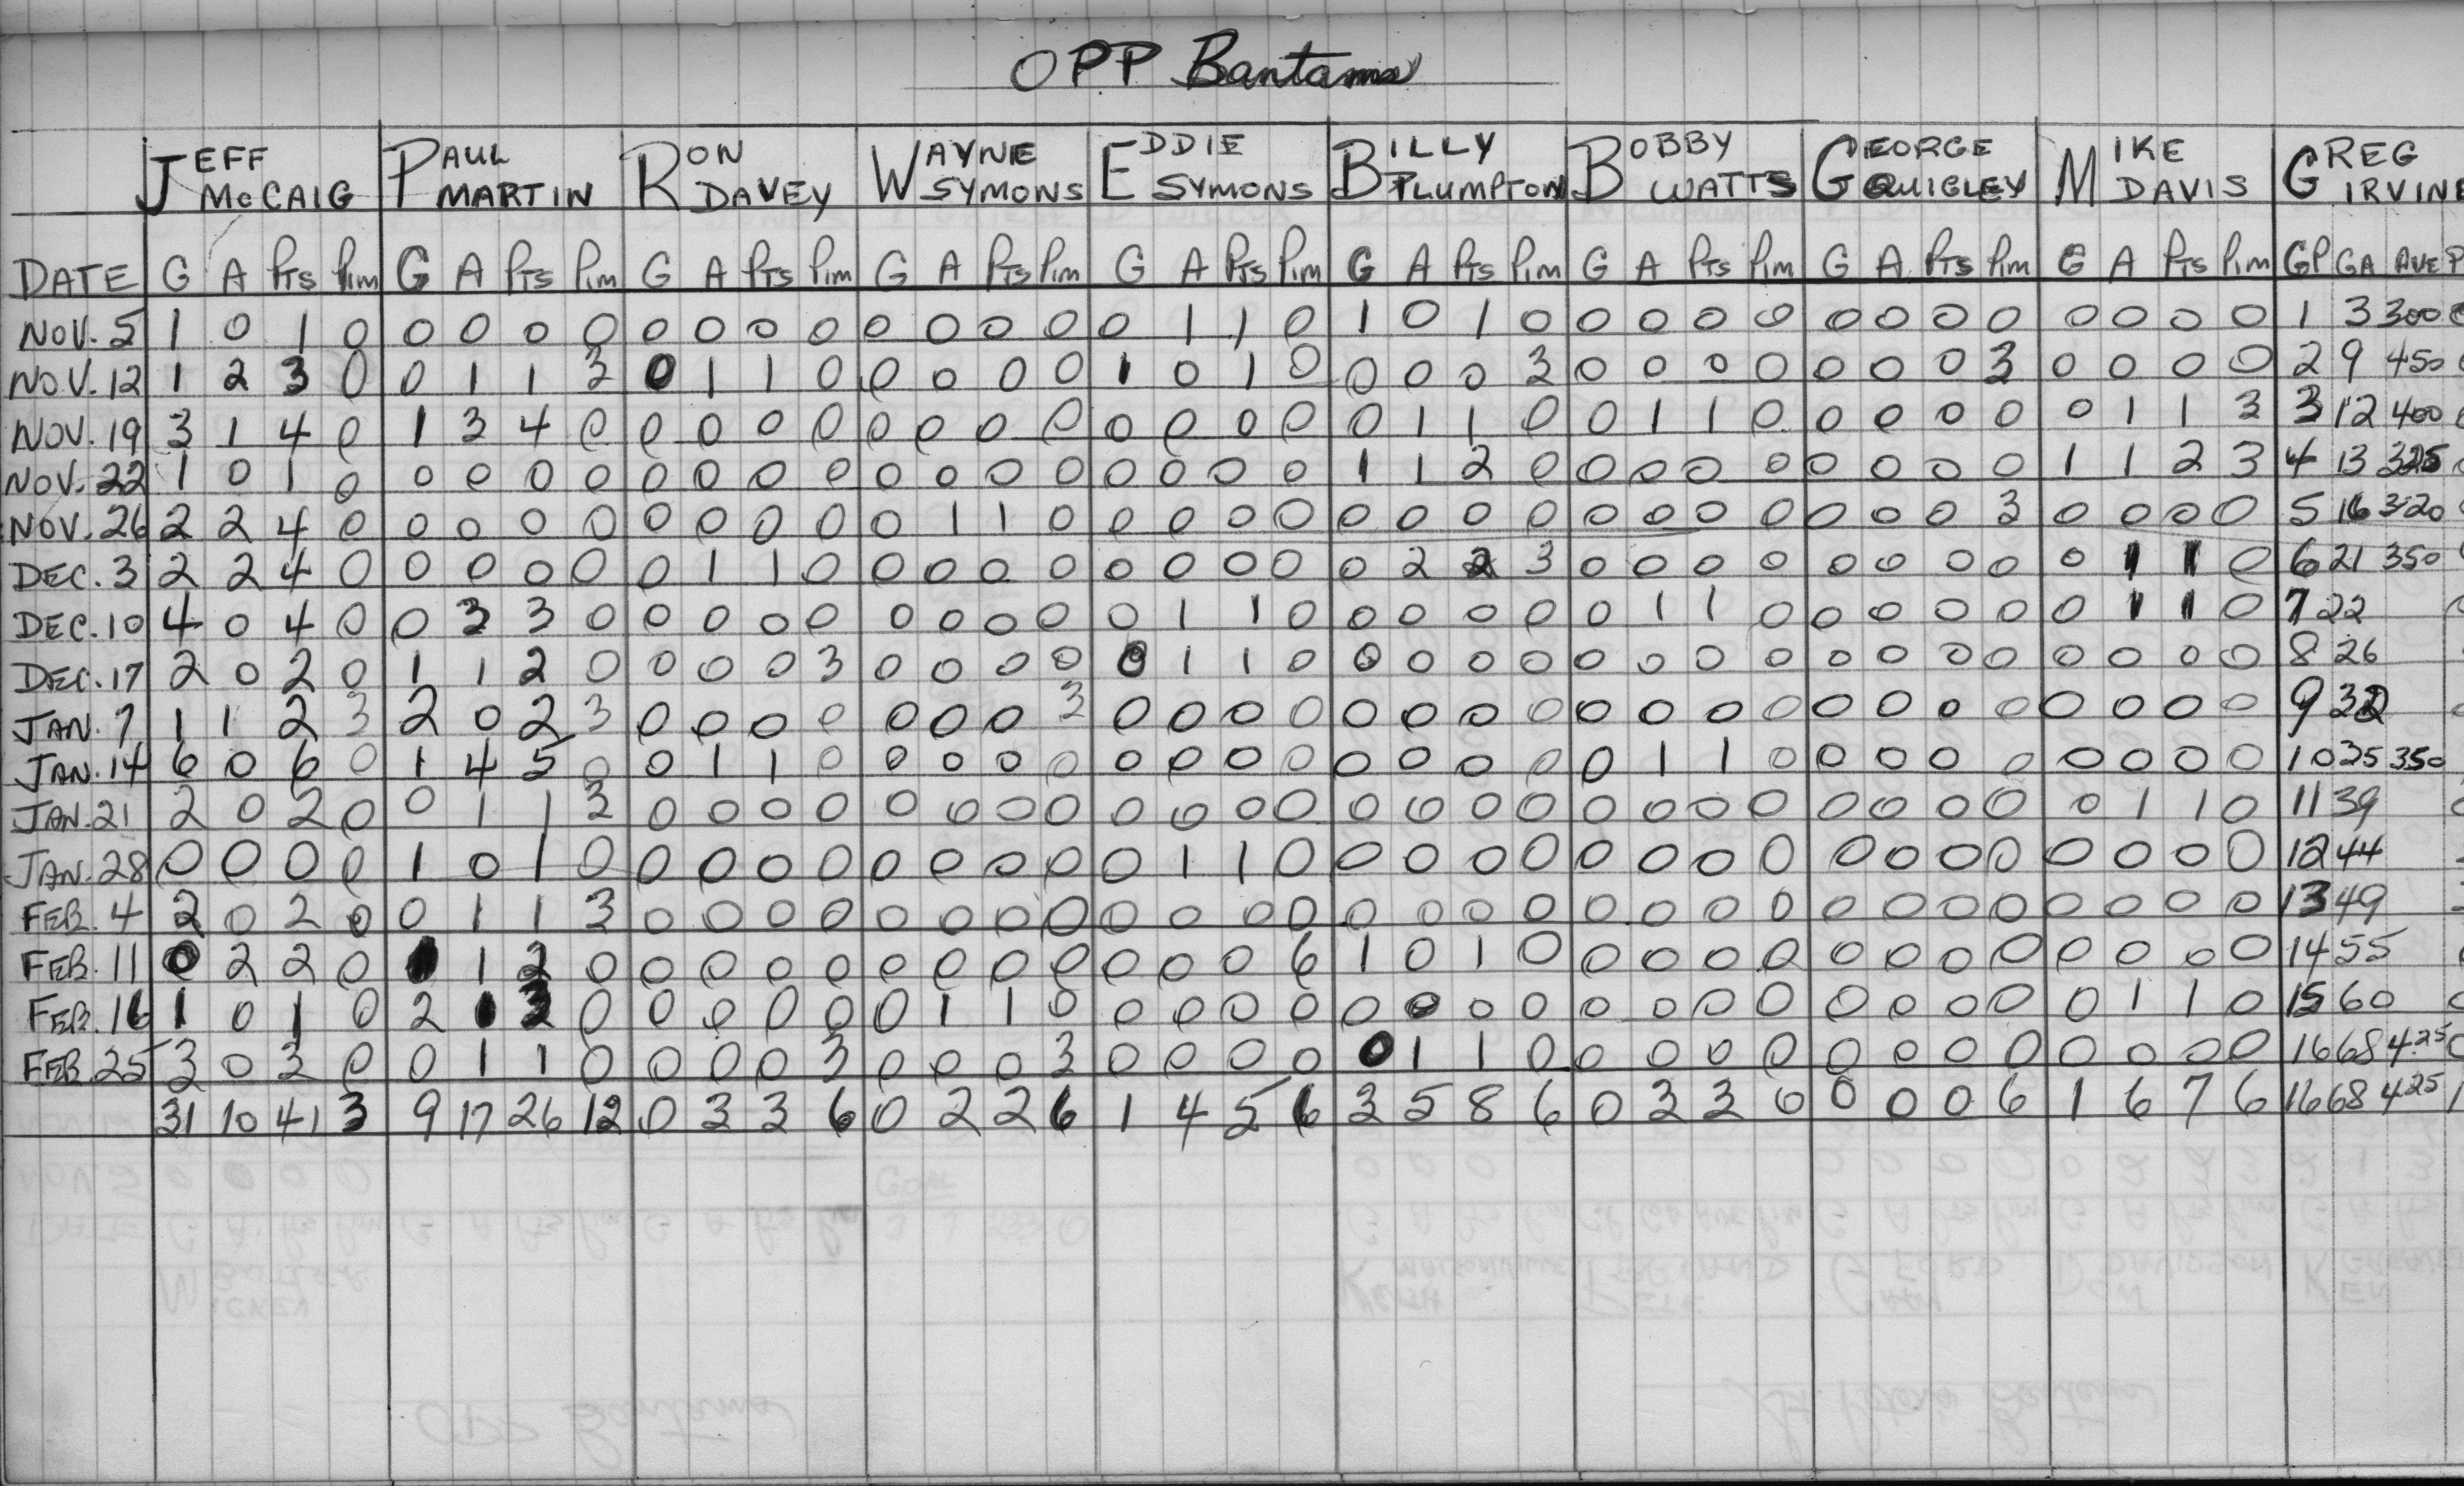 OPP Bantams
JEFF McCAIG PAUL MARTIN RON DAVEY WAYNE SYMONS EDDIE SYMONS BILLY PLUMPTON BOBBY WATTS GEORGE QUIGLEY MIKE DAVIS GREG IRVINE
DATE G A Pts Pim G A Pts Pim G A Pts Pim G A Pts Pim G A Pts Pim G A Pts Pim G A Pts Pim G A Pts Pim G A Pts Pim GP GA AVE P
NOV. 5 1 0 1 0 0 0 0 0 0 0 0 0 0 0 0 0 0 1 1 0 1 0 1 0 0 0 0 0 0 0 0 0 0 0 0 0 1 3 300
NOV. 12 1 2 3 0 0 1 1 3 0 1 1 0 0 0 0 0 1 0 1 0 0 0 0 3 0 0 0 0 0 0 0 3 0 0 0 0 2 9 450
NOV. 19 3 1 4 0 1 3 4 0 0 0 0 0 0 0 0 0 0 0 0 0 0 1 1 0 0 1 1 0 0 0 0 0 0 1 1 3 3 12 400
NOV. 22 1 0 1 0 0 0 0 0 0 0 0 0 0 0 0 0 0 0 0 0 1 1 2 0 0 0 0 0 0 0 0 0 1 1 2 3 4 13 325
NOV. 26 2 2 4 0 0 0 0 0 0 0 0 0 0 1 1 0 0 0 0 0 0 0 0 0 0 0 0 0 0 0 0 3 0 0 0 0 5 16 320
DEC. 3 2 2 4 0 0 0 0 0 0 1 1 0 0 0 0 0 0 0 0 0 0 2 2 3 0 0 0 0 0 0 0 0 0 1 1 0 6 21 350
DEC. 10 4 0 4 0 0 3 3 0 0 0 0 0 0 0 0 0 0 1 1 0 0 0 0 0 0 1 1 0 0 0 0 0 0 1 1 0 7 22
DEC. 17 2 0 2 0 1 1 2 0 0 0 0 3 0 0 0 0 0 1 1 0 0 0 0 0 0 0 0 0 0 0 0 0 0 0 0 0 8 26
JAN. 7 1 1 2 3 2 0 2 3 0 0 0 0 0 0 0 3 0 0 0 0 0 0 0 0 0 0 0 0 0 0 0 0 0 0 0 0 9 32
JAN. 14 6 0 6 0 1 4 5 0 0 1 1 0 0 0 0 0 0 0 0 0 0 0 0 0 0 1 1 0 0 0 0 0 0 0 0 0 10 35 350
JAN. 21 2 0 2 0 0 1 1 3 0 0 0 0 0 0 0 0 0 0 0 0 0 0 0 0 0 0 0 0 0 0 0 0 0 1 1 0 11 39
JAN. 28 0 0 0 0 1 0 1 0 0 0 0 0 0 0 0 0 0 1 1 0 0 0 0 0 0 0 0 0 0 0 0 0 0 0 0 0 12 44
FEB. 4 2 0 2 0 0 1 1 3 0 0 0 0 0 0 0 0 0 0 0 0 0 0 0 0 0 0 0 0 0 0 0 0 0 0 0 0 13 49
FEB. 11 0 2 2 0 1 1 2 0 0 0 0 0 0 0 0 0 0 0 0 6 1 0 1 0 0 0 0 0 0 0 0 0 0 0 0 0 14 55
FEB. 16 1 0 1 0 2 1 3 0 0 0 0 0 0 1 1 0 0 0 0 0 0 0 0 0 0 0 0 0 0 0 0 0 0 1 1 0 15 60
FEB. 25 3 0 3 0 0 1 1 0 0 0 0 3 0 0 0 3 0 0 0 0 0 1 1 0 0 0 0 0 0 0 0 0 0 0 0 0 16 68 4.25
31 10 41 3 9 17 26 12 0 3 3 6 0 2 2 6 1 4 5 6 3 5 8 6 0 3 3 0 0 0 0 6 1 6 7 6 16 68 425